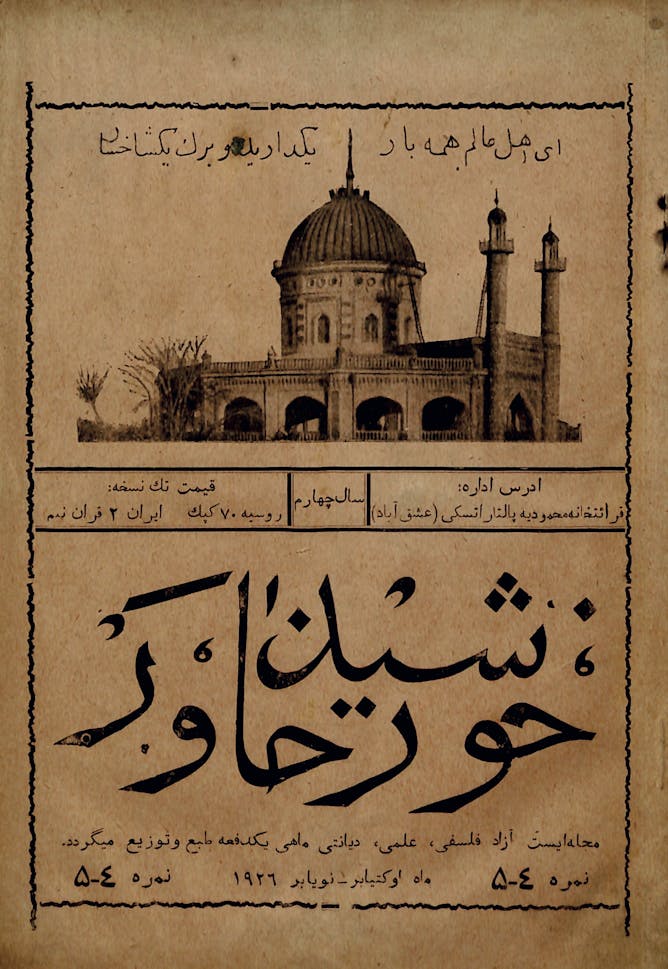 ای اهل عالم همه بار یکدارید و برک یکشاخسار
ادرس اداره:
قرائتخانه محمودیه پالتاراتسکی (عشق آباد)
سال چهارم
قیمت تك نسخه:
روسیه ۷۰ کپك ایران ۲ قران نیم
خورشید خاور
مجله‌ایست آزاد فلسفی، علمی، دیانتی ماهی یکدفعه طبع و توزیع میگردد.
نمره ۴-۵ ماه اوکتیابر-نویابر ۱۹۲۶ نمره ۴-۵